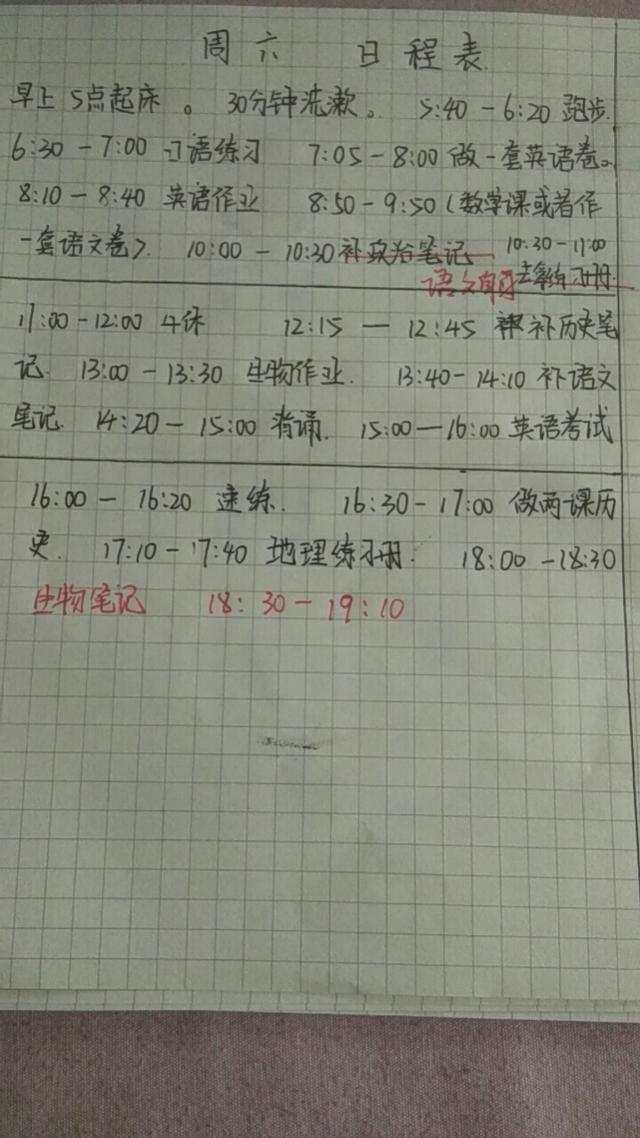 周六 日程表
早上 5点起床 。 30分钟洗漱。 5:40 - 6:20 跑步.
6:30 - 7:00 口语练习 7:05 - 8:00 做一套英语卷。
8:10 - 8:40 英语作业 8:50 - 9:50 (数学课或者作
一套语文卷). 10:00 - 10:30 补政治笔记 10:30-11:00
语文 练习册.
11:00 - 12:00 午休 12:15 — 12:45 补历史笔
记. 13:00 - 13:30 生物作业. 13:40 - 14:10 补语文
笔记. 14:20 - 15:00 背诵. 15:00 — 16:00 英语考试
16:00 - 16:20 速练. 16:30 - 17:00 做两课历
史. 17:10 - 17:40 地理练习册. 18:00 - 18:30
生物笔记 18:30 - 19:10